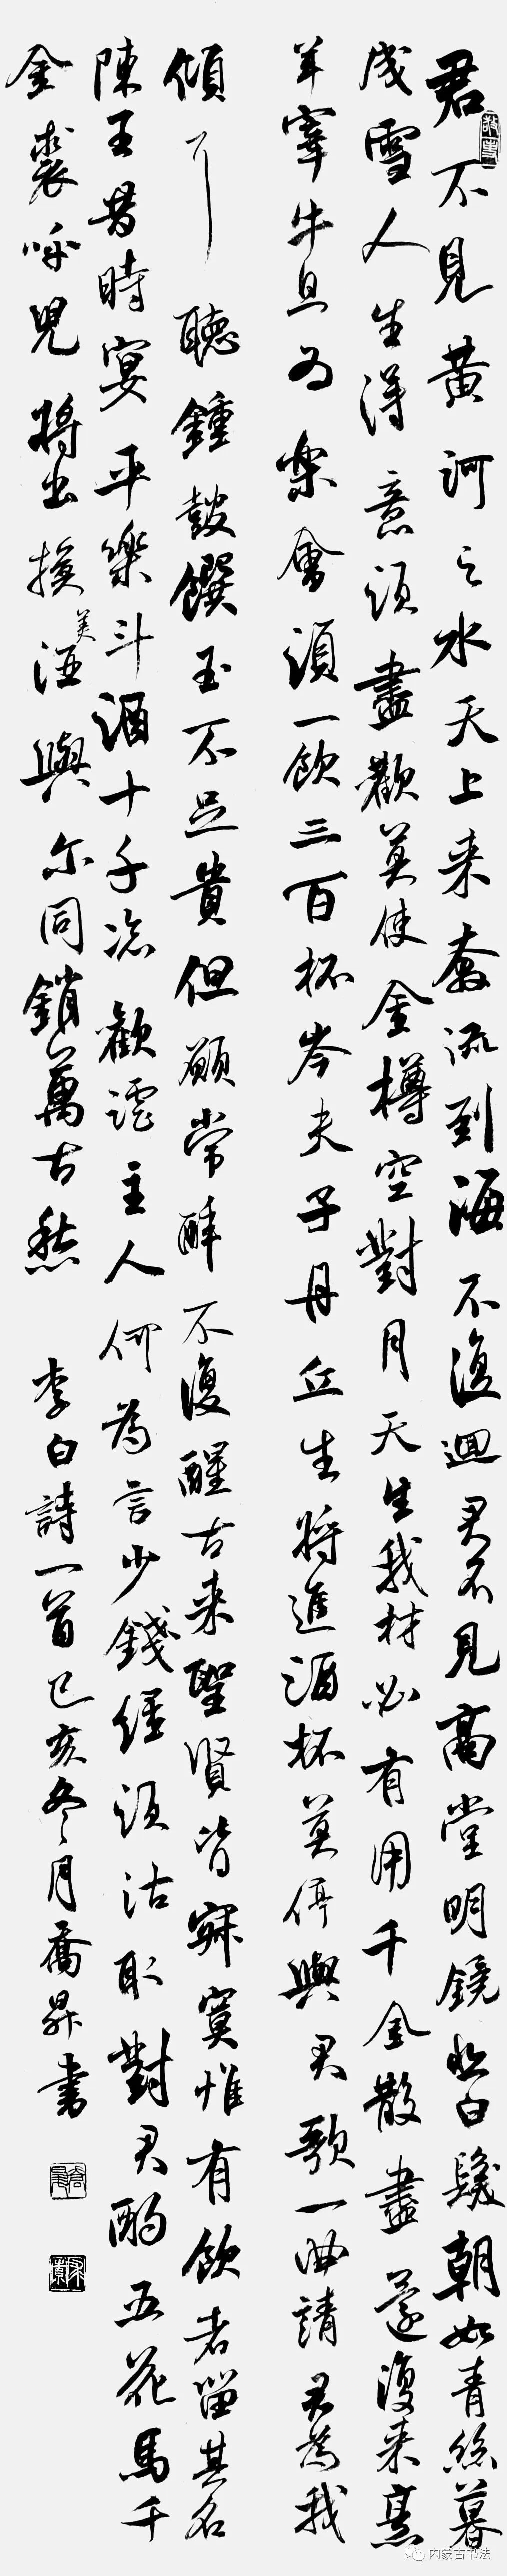 君不見黄河之水天上来奔流到海不復迴君不見高堂明鏡悲白髮朝如青絲暮
成雪人生得意須盡歡莫使金樽空對月天生我材必有用千金散盡還復来烹
羊宰牛且為樂會須一飲三百杯岑夫子丹丘生将進酒杯莫停與君歌一曲請君為我
傾耳聽鍾鼓饌玉不足貴但願常醉不復醒古来聖賢皆寂寞惟有飲者留其名
陳王昔時宴平樂斗酒十千恣歡謔主人何為言少錢徑須沽取對君酌五花馬千
金裘呼児将出換美酒與尔同銷萬古愁 李白詩一首己亥冬月喬昇書
内蒙古书法